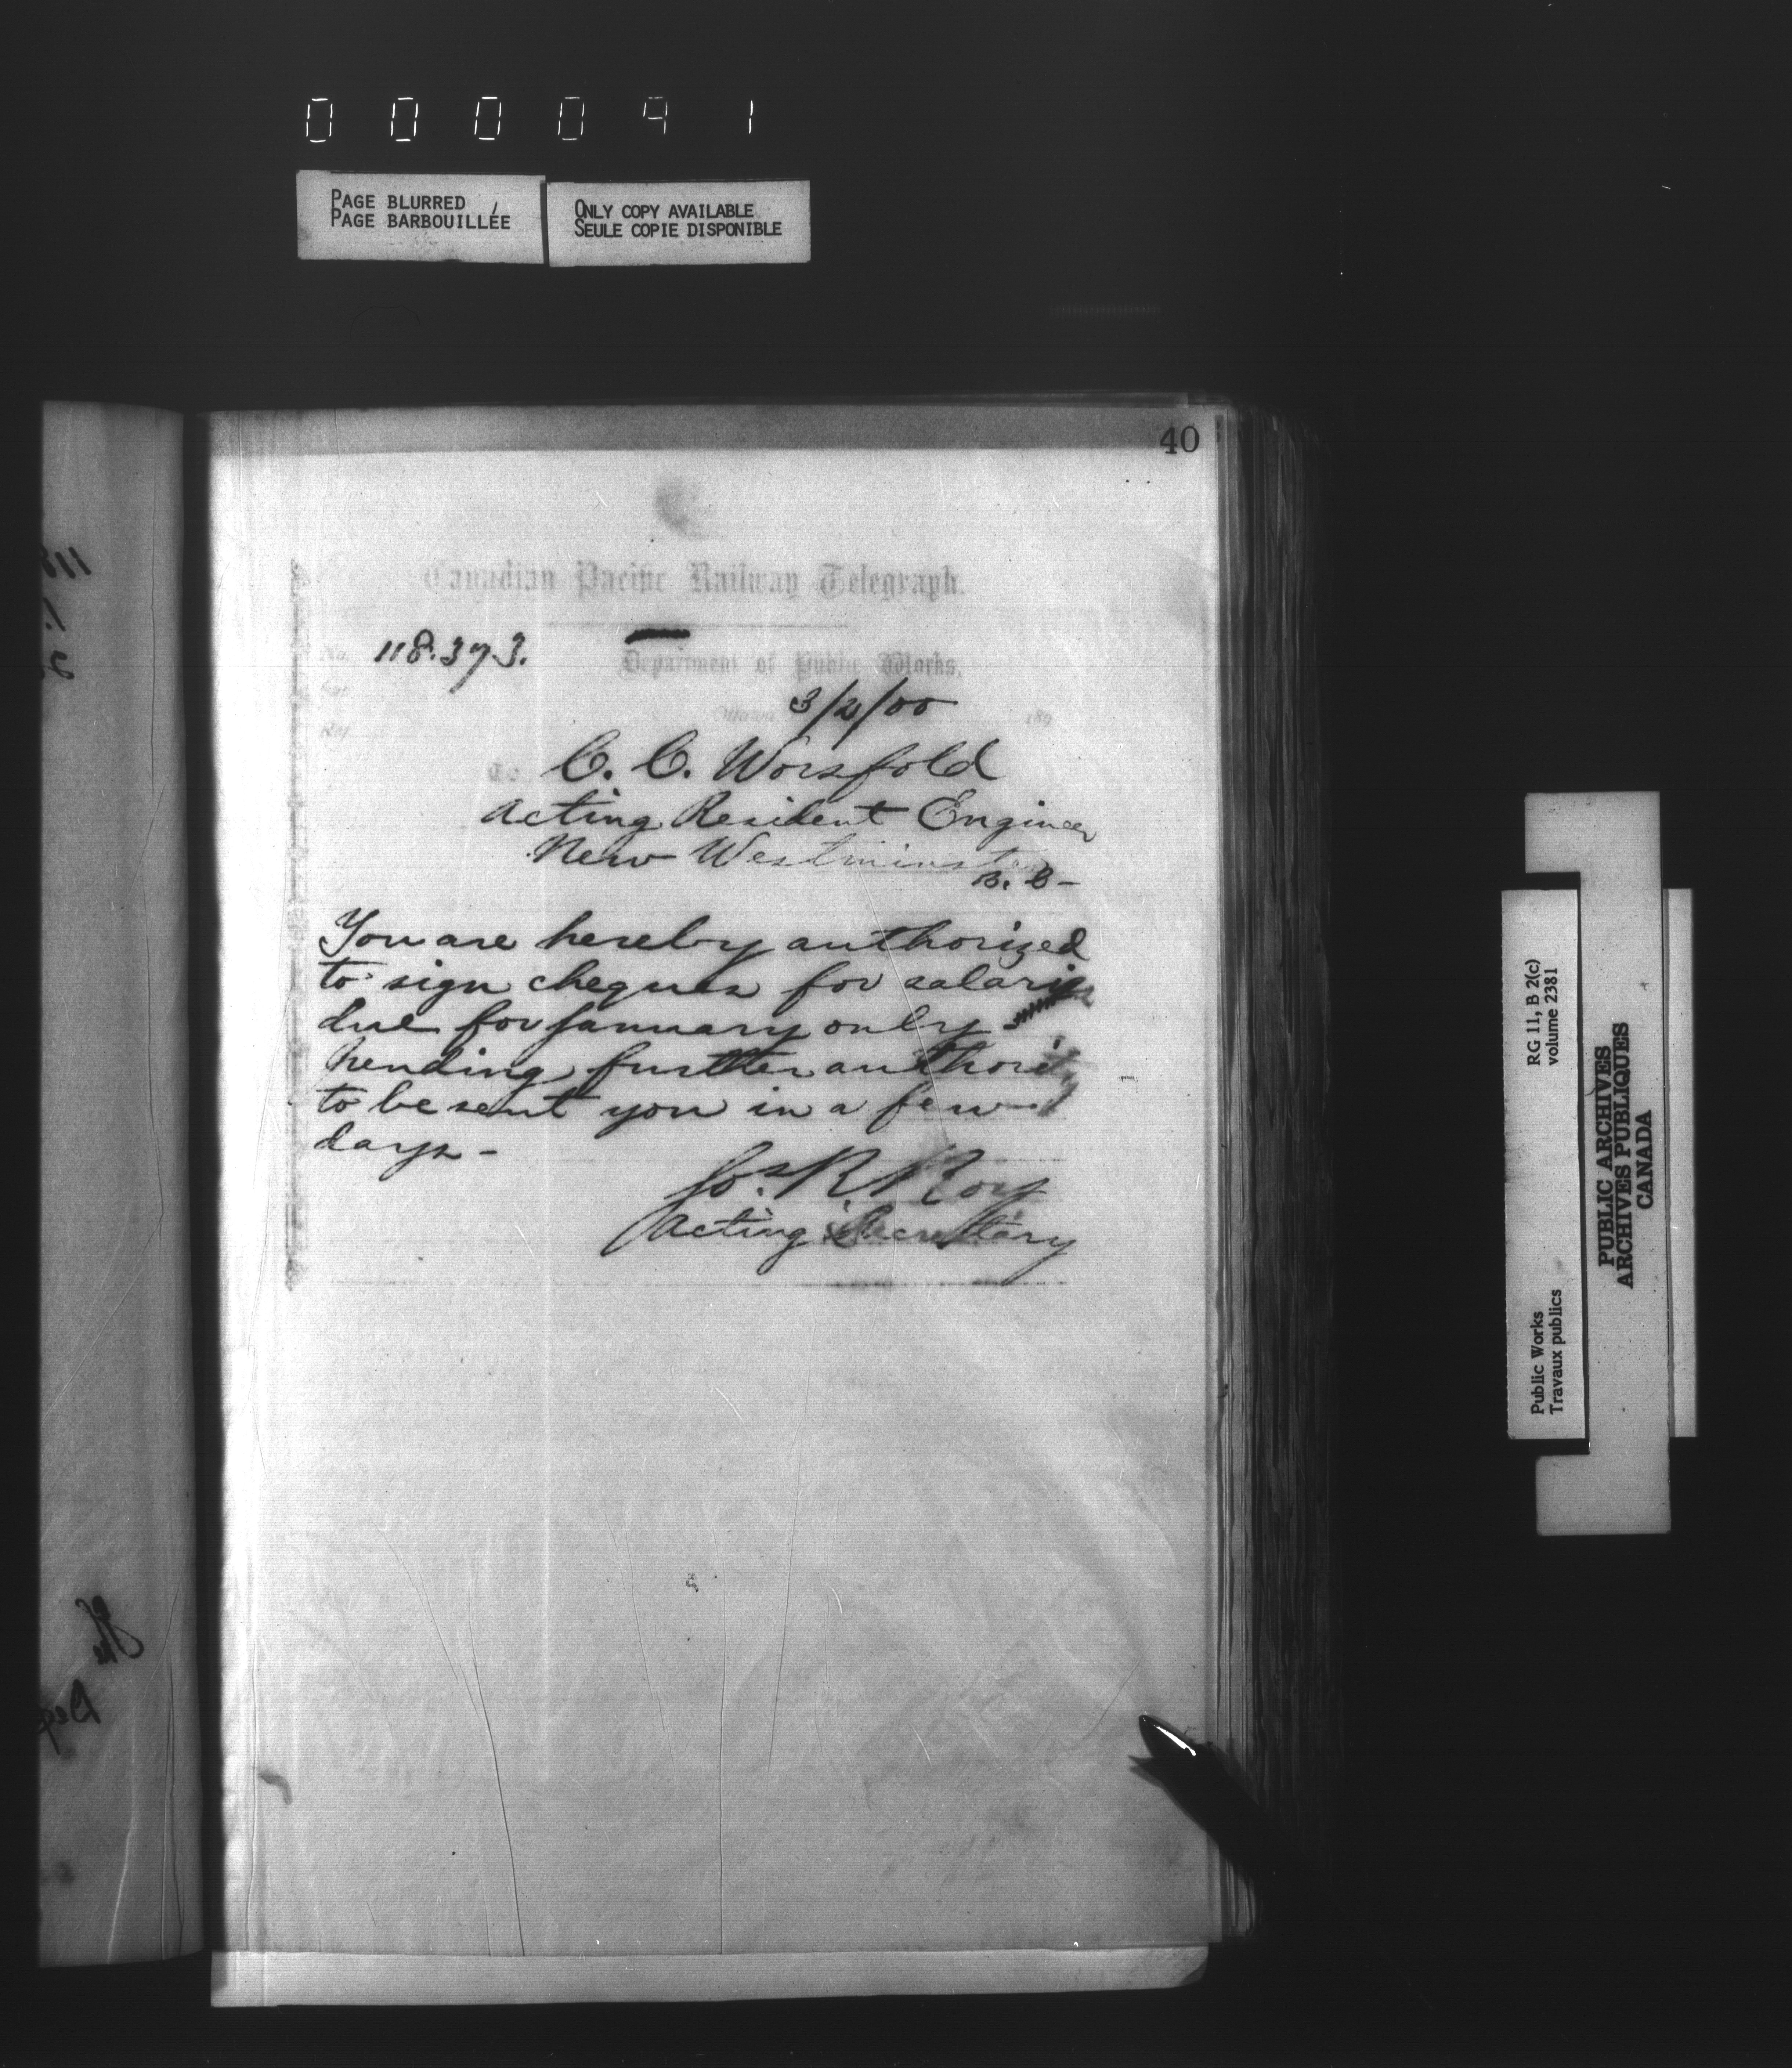 000091
PAGE BLURRED
PAGE BARBOUILLÉE
ONLY COPY AVAILABLE
SEULE COPIE DISPONIBLE
40
Canadian Pacific Railway Telegraph.
No. 118.373.
Department of Public Works,
Ottawa 3/2/00 189
To C. C. Worsfold
Acting Resident Engineer
New Westminster
B. C-
You are hereby authorized
to sign cheques for salaries
due for January only
pending further authority
to be sent you in a few
days-
Jos. R. Roy
Acting Secretary
RG 11, B 2(c)
volume 2381
Public Works
Travaux publics
PUBLIC ARCHIVES
ARCHIVES PUBLIQUES
CANADA